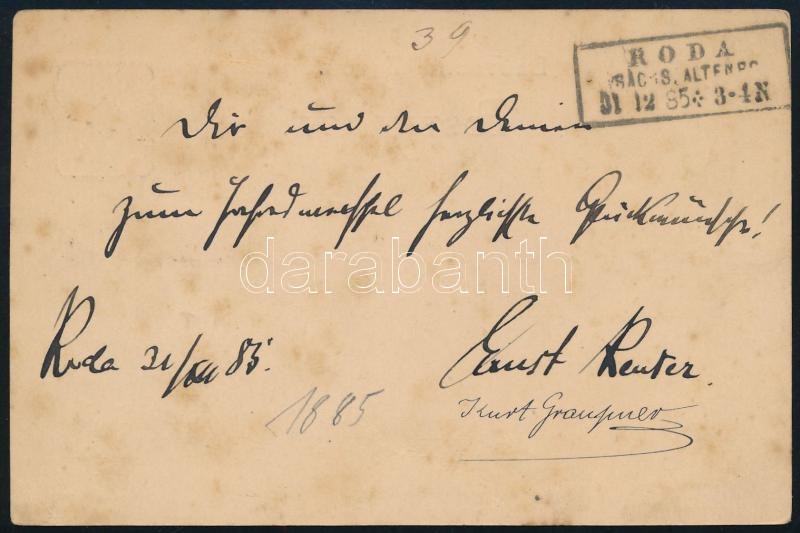 39
RODA
SACHS. ALTENBG
31 12 85 3-4N
Dir und den Deinen
zum Jahreswechsel herzlichste Glückwünsche!
darabanth
Roda 31/XII 85.
Ernst Reuter.
Kurt Graupner
1885